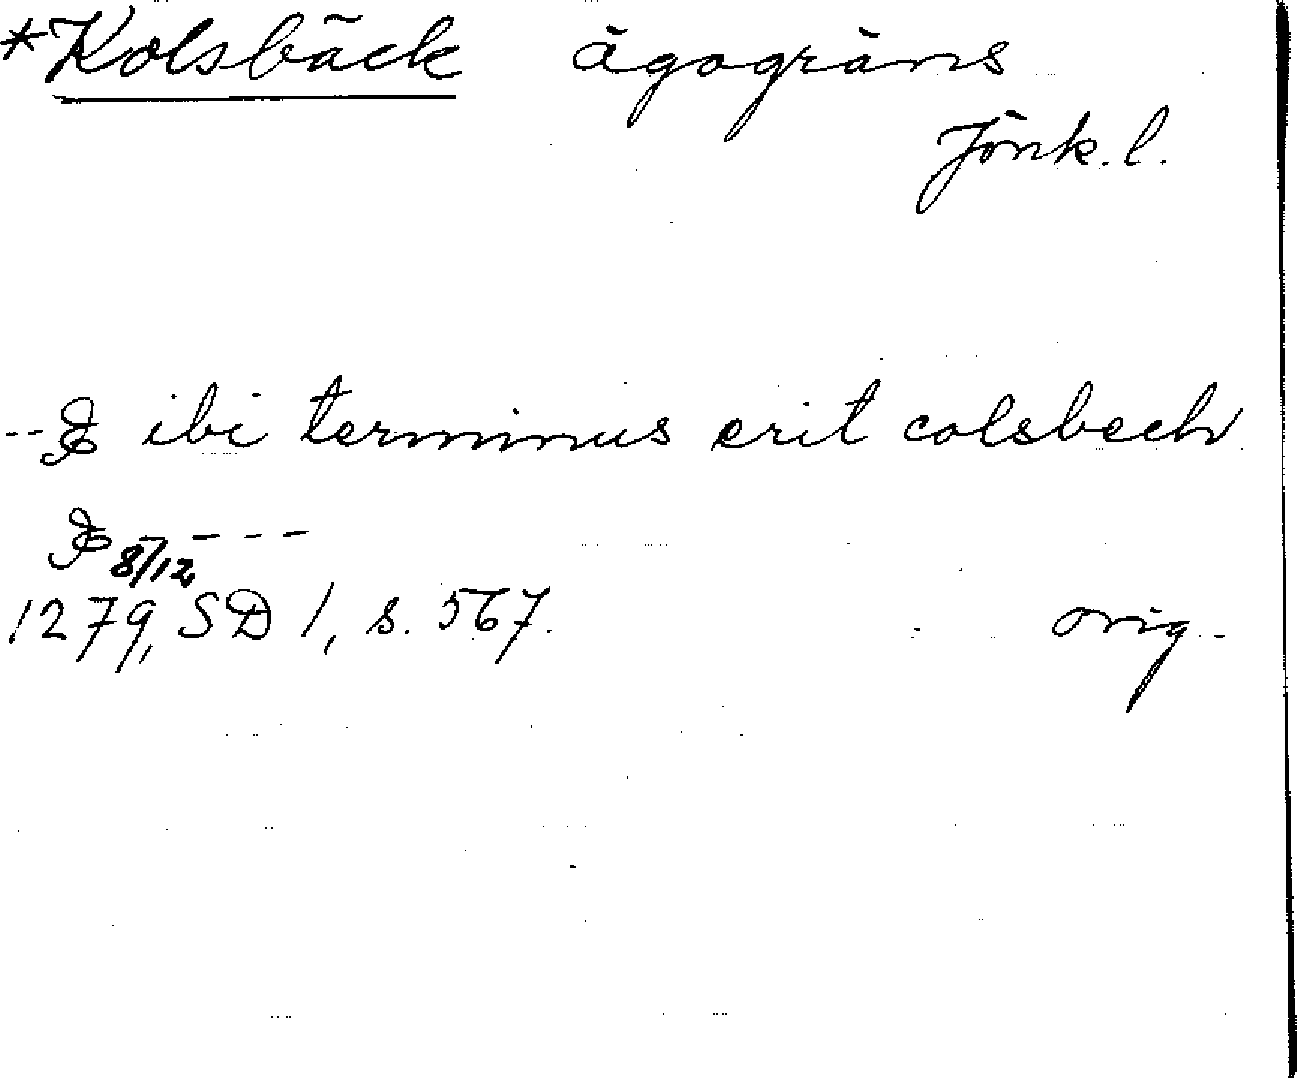 *Kolsbäck ägogräns
Jönk. l.
--& ibi terminus erit colsbech
& - - - -
8/12
1279, SD 1, s. 567. orig.